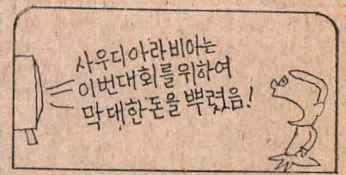 사우디아라비아는
이번대회를위하여
막대한돈을뿌렸음!